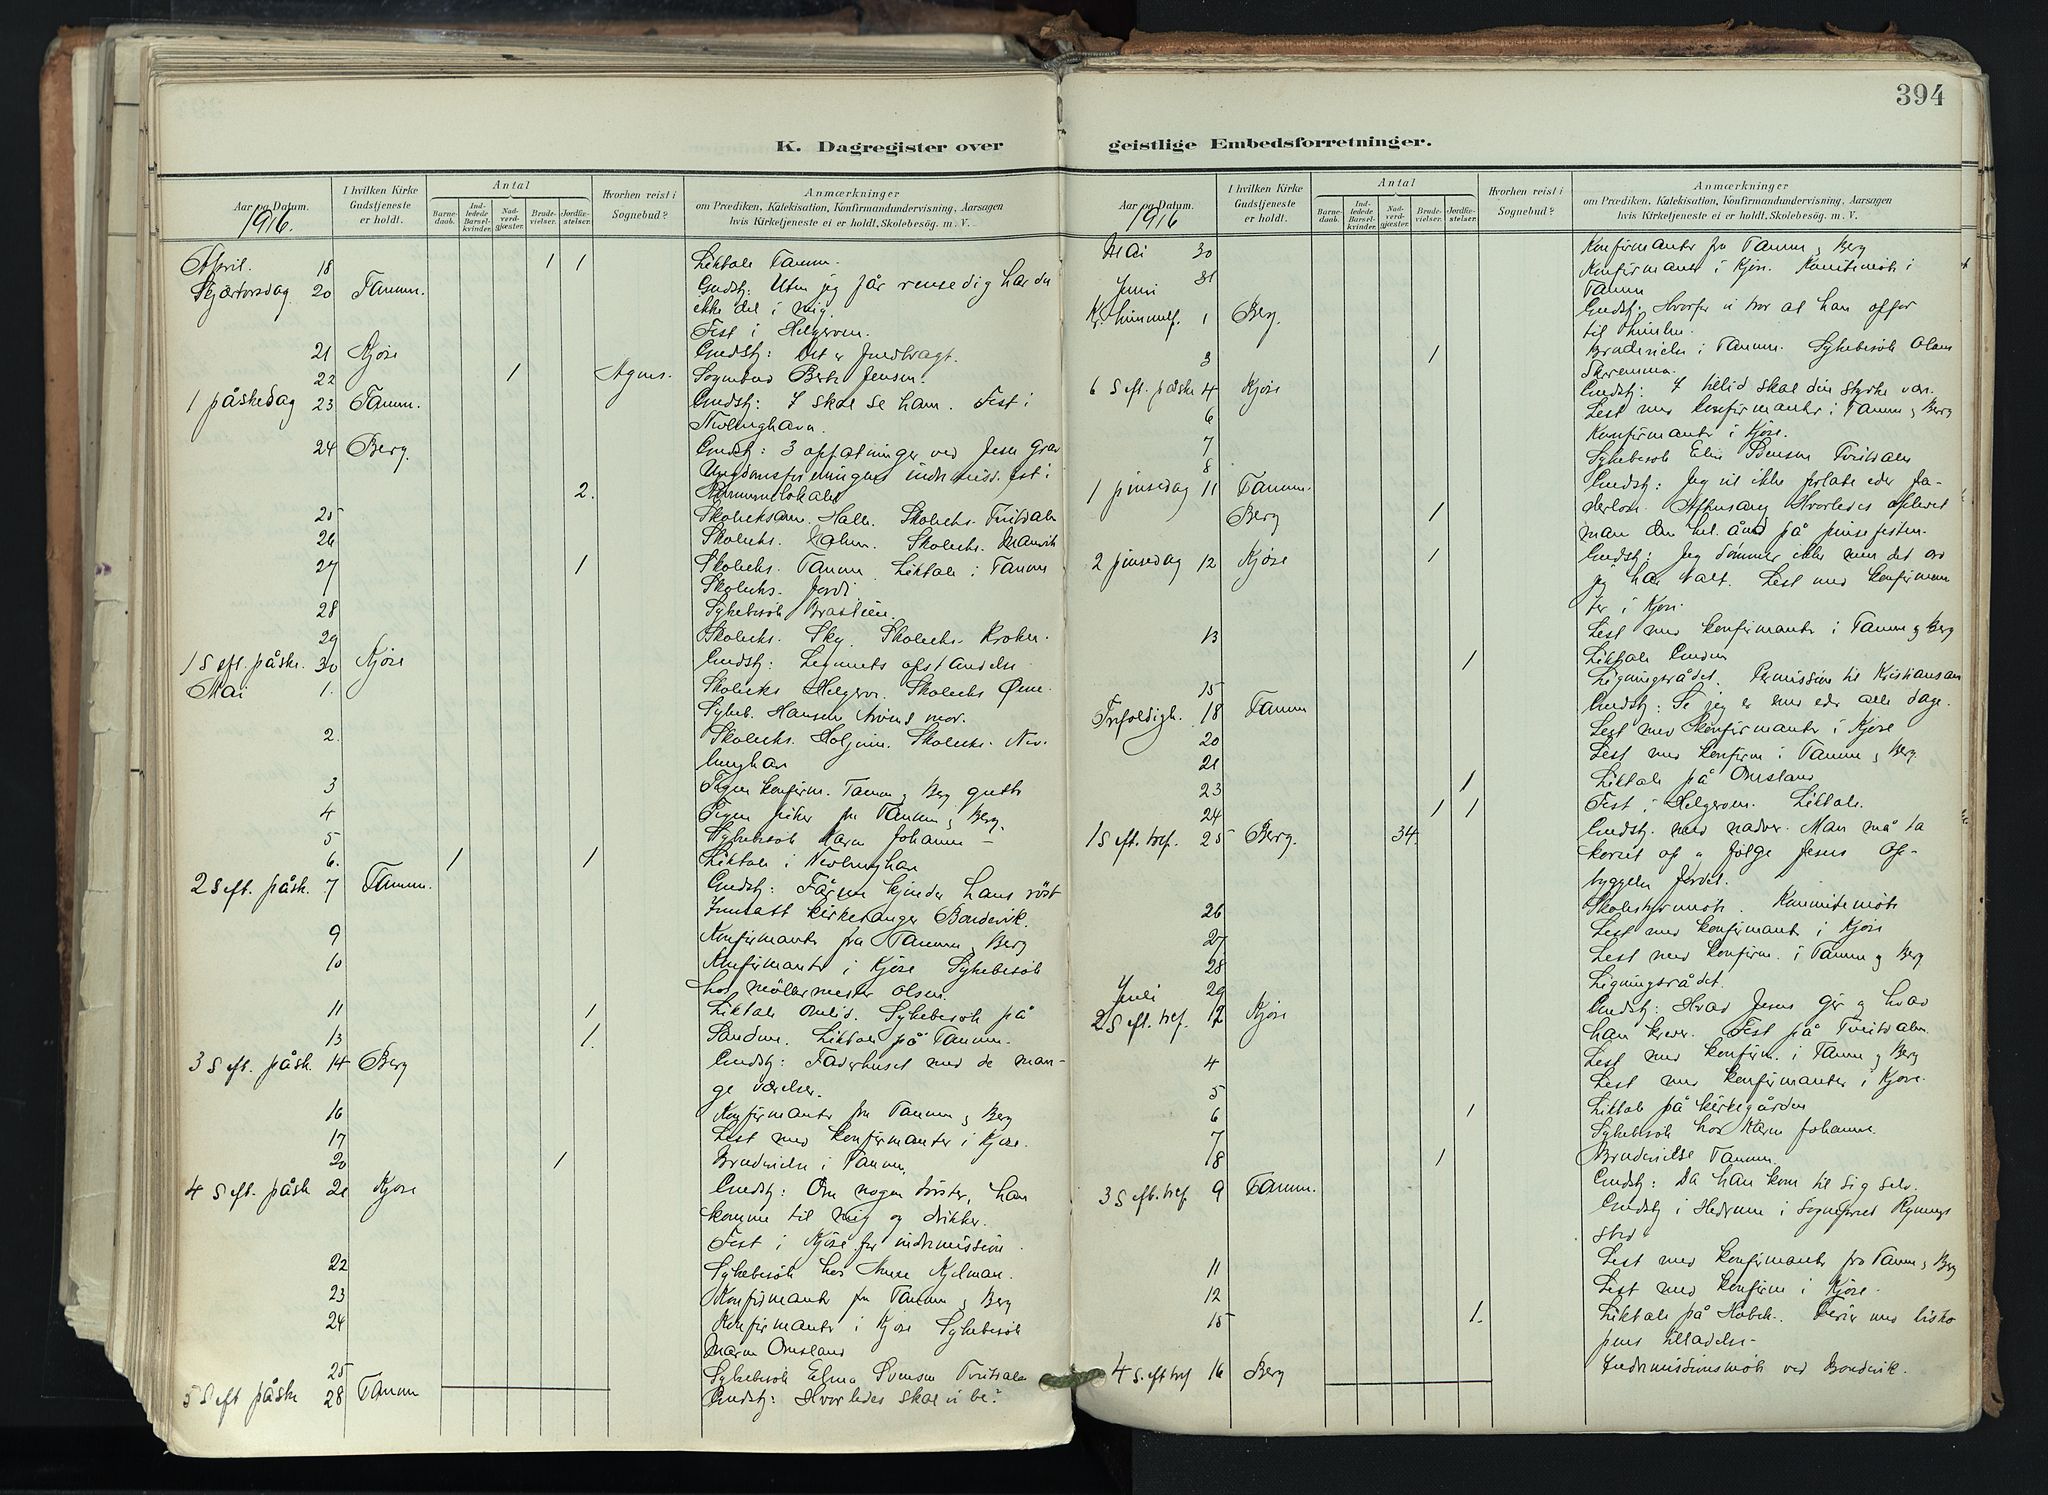 394
K. Dagregister over
geistlige Embedsforretninger.
Aar og Datum.
1916.
I hvilken Kirke
Gudstjeneste
er holdt.
Antal
Barne-
daab.
Ind-
ledede
Barsel-
kvinder.
Nad-
verd-
gjæster.
Brude-
vielser.
Jordfæ-
stelser.
Hvorhen reist i
Sognebud?
Anmærkninger
om Prædiken, Katekisation, Konfirmandundervisning, Aarsagen
hvis Kirketjeneste ei er holdt, Skolebesøg. m. V.
April. 18 1 1 Liktale Tanum.
Skjærtorsdag 20 Tanum. Gudstj: Uten jeg får rense dig har du
ikke del i mig.
Fest i Helgeroen.
21 Kjose Gudstj: Det er fuldbragt.
22 1 Agnes. Sognebud Jensen.
1 påskedag 23 Tanum. Gudstj: I skal se ham. Fest i
Nevlunghavn.
24 Berg. Gudstj: 3 opfatninger ved Jesu Grav
Ungdomsforeningens indremiss. fest i
2.
25 Skoleeksam. Halle. Skoleeks. Tveitdalen
26 Skoleeks. Skoleeks. Manvik
27 1 Skoleeks. Tanum. Liktale i Tanum
Skoleeks.
28 Sykebesök
29 Skoleeks. Sky. Skoleeks.
1 S eft. påske. 30 Kjose Gudstj: Legemets opstandelse
Mai 1. Skoleeks Helgeroa. Skoleeks
Sykeb. Hansen mor.
2. Skoleeks. Skoleeks. Nev-
lunghavn
3 konfirm. Tanum og Berg gutter
4 piker fra Tanum og Berg.
5 Sykebesök Karen Johanne –
6. 1 1 Liktale i Nevlunghavn
2 S eft. påsk. 7 Tanum. Gudstj: Fårene kjender hans röst
Innsatt kirkesanger Bondevik.
9 Konfirmanter fra Tanum og Berg
10 Konfirmanter i Kjose Sykebesök
hos möllermester Olsen.
11 1 Liktale Omlid. Sykebesök på
13 1. Liktale på Tanum.
3 S eft. påsk. 14 Berg Gudstj: Faderhuset med de man-
ge værelser.
16 Konfirmanter fra Tanum og Berg
17 Lest med konfirmanter i Kjose.
20 1 Brudevielse i Tanum.
4 S eft. påsk 21 Kjose Gudstj: Om nogen törster, han
komme til mig og drikke.
Fest i Kjose for indremission.
22 Sykebesök hos
23 Konfirmanter fra Tanum og Berg
24 Konfirmanter i Kjose Sykebesök
Maren Omsland
25 Sykebesök Elina Svensen Tveitdalen
5 S eft påske 28 Tanum Gudstj: Hvorledes skal vi be?
Aar og Datum.
1916
I hvilken Kirke
Gudstjeneste
er holdt.
Antal
Barne-
daab.
Ind-
ledede
Barsel-
kvinder.
Nad-
verd-
gjæster.
Brude-
vielser.
Jordfæ-
stelser.
Hvorhen reist i
Sognebud?
Anmærkninger
om Prædiken, Katekisation, Konfirmandundervisning, Aarsagen
hvis Kirketjeneste ei er holdt, Skolebesøg. m. V.
Mai 30 Konfirmanter fra Tanum og Berg
31 Konfirmanter i Kjose. Komitemöte i
Juni Tanum
Kr. himmelf. 1 Berg. Gudstj: Hvorfor vi tror at han opfor
til himlen.
3 1 Brudevielse i Tanum. Sykebesök Olava
6 S eft. påske 4 Kjose Gudstj: I tillid skal din styrke være.
6 Lest med konfirmanter i Tanum og Berg
7 Konfirmanter i Kjose.
8 Sykebesök Elin Svensen Tveitdalen
1 pinsedag 11 Tanum. Gudstj: Jeg vil ikke forlate eder fa-
derlöse. Aftensang Hvorledes oplevet
Berg 1 man den hel. ånd på pinsefesten.
2 pinsedag 12 Kjose 1 Gudstj: Jeg dömmer ikke men det ord
jeg har talt. Lest med konfirman
ter i Kjose.
13 Lest med konfirmanter i Tanum og Berg
1 Liktale
15 Ligningsrådet. Permission til Kristiansand
Trefoldigh. 18 Tanum Gudstj: Se jeg er med eder alle dage.
20 Lest med konfirmanter i Kjose
21 Lest med konfirm i Tanum og Berg.
23 1 Liktale på Omsland
24 1 1 Fest i Helgeroen. Liktale.
1 S eft. tref. 25 Berg. 34. Gudstj. med nadver. Man må ta
korset op og fölge Jesus Op-
byggelse
26 Skolestyremöte. Komitemöte
27 Lest med konfirmanter i Kjose
28 Lest med konfirm. i Tanum og Berg
29 Ligningsrådet.
Juli
2 S eft. tref. 2 Kjose Gudstj: Hvad Jesus gir og hvad
han krever. Fest på Tveitdalen.
4 Lest med konfirm. i Tanum og Berg
5 Lest med konfirmanter i Kjose.
6 1 Liktale på kirkegården
7 Sykebesök hos Karen Johanne.
8 1 Brudevielse Tanum.
3 S eft. tref 9 Tanum. Gudstj: Da han kom til sig selv.
Gudstj i Hedrum i Sogneprest
sted
11 Lest med konfirmanter fra Tanum og Berg
12 Lest med konfirm i Kjose.
15 1. Liktale på Ferier med bisko
pens tilladelse.
4 S. eft tref 16 Berg Indremissionsmöte ved Bondevik.